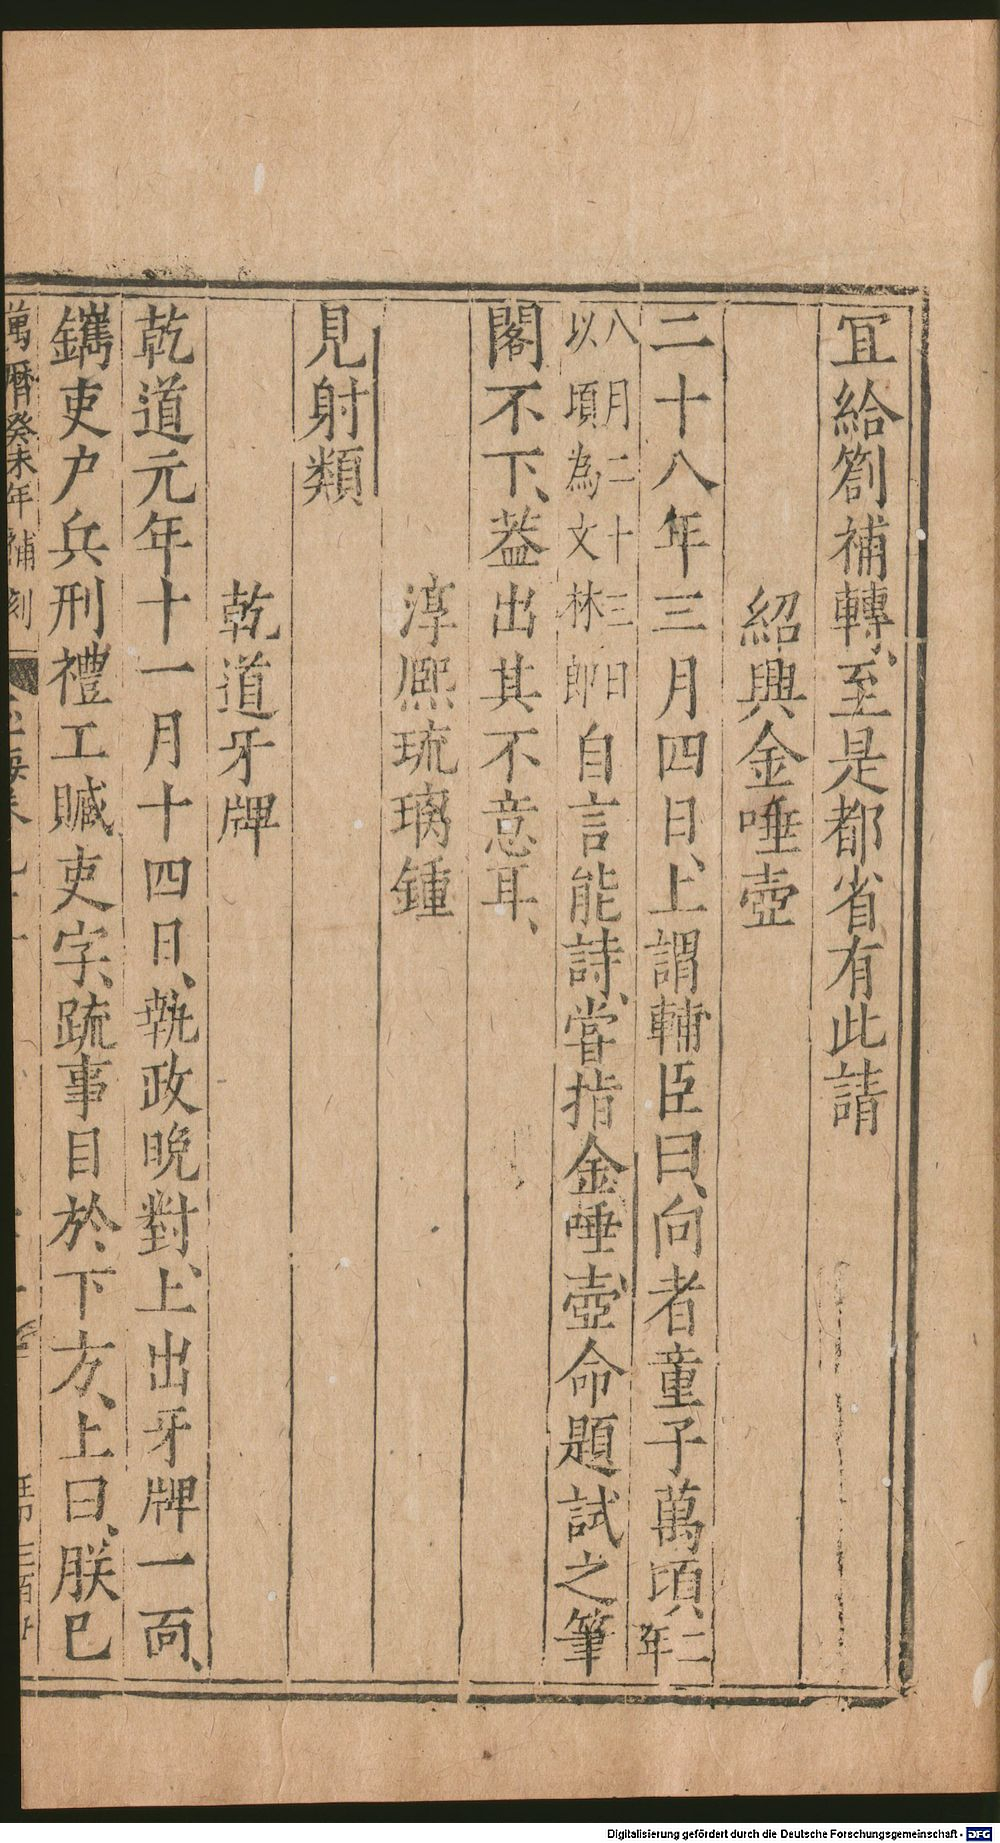 冝給劄補轉、至是都省有此請
紹興金唾壺
二十八年三月四日、上謂輔臣曰、向者童子萬頃、二年
八月二十三日以頃為文林郎自言能詩、嘗指金唾壺命題試之筆
閣不下、葢出其不意耳、
淳熈琉璃鍾
見射類
乾道牙牌
乾道元年十一月十四日、執政晚對、上出牙牌一面、
鐫吏户兵刑禮工贓吏字、䟽事目於下方、上曰、朕已
萬曆癸未年補刻
Digitalisierung gefördert durch die Deutsche Forschungsgemeinschaft - DFG